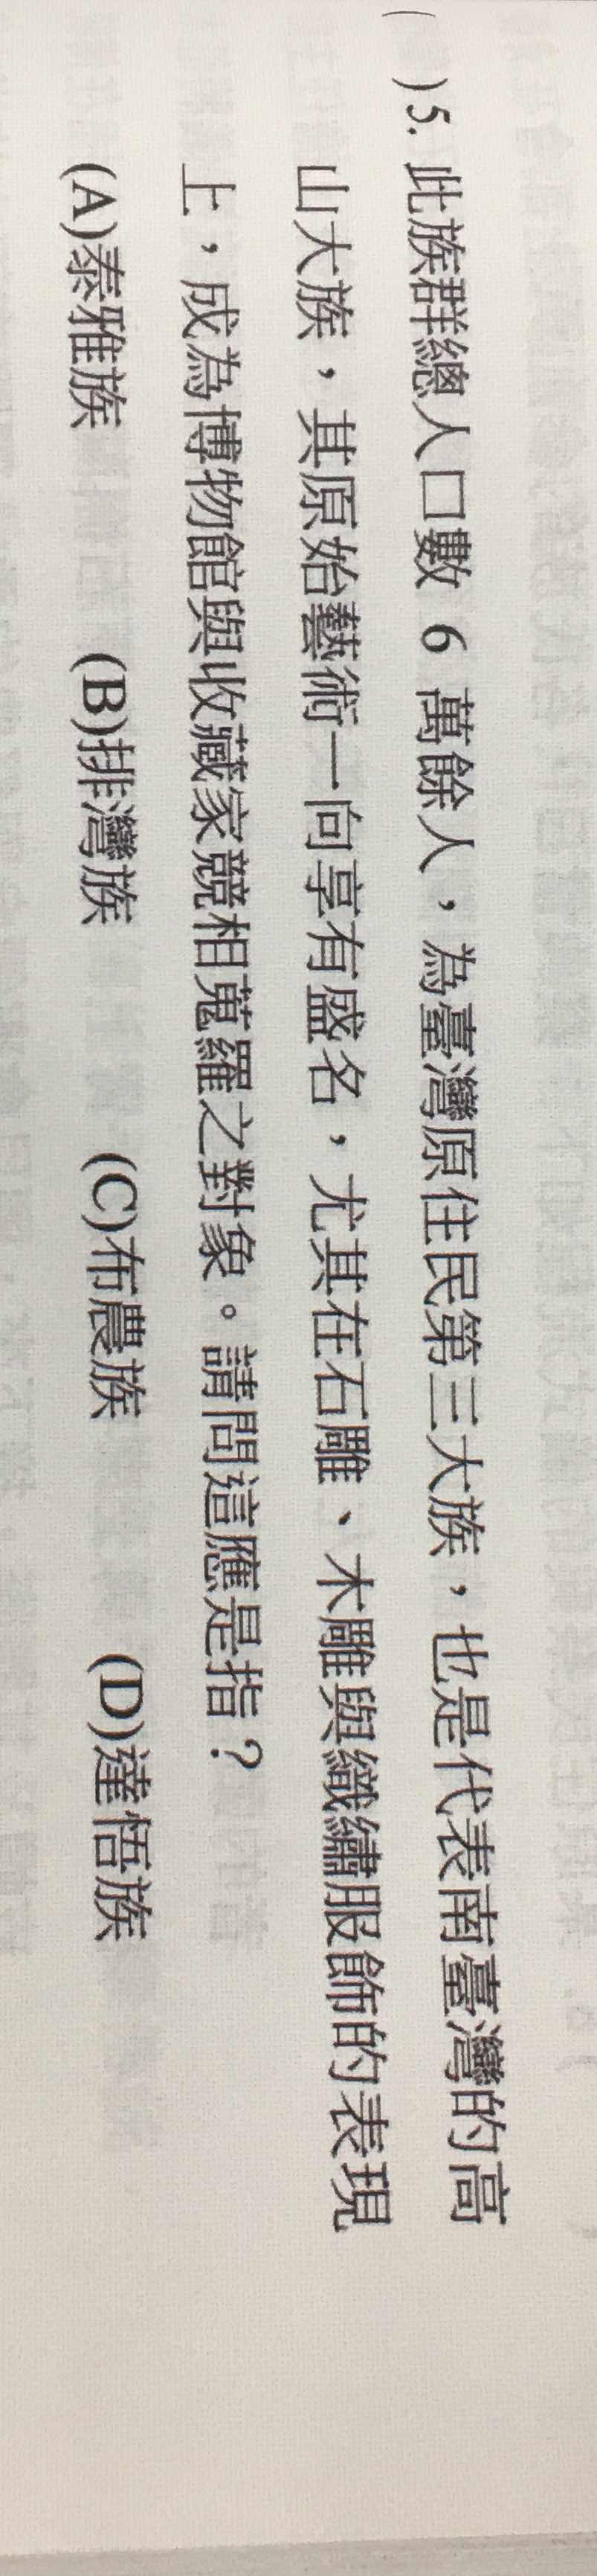 ( )5. 此族群總人口數 6 萬餘人，為臺灣原住民第三大族，也是代表南臺灣的高
山大族，其原始藝術一向享有盛名，尤其在石雕、木雕與織繡服飾的表現
上，成為博物館與收藏家競相蒐羅之對象。請問這應是指？
(A)泰雅族 (B)排灣族 (C)布農族 (D)達悟族